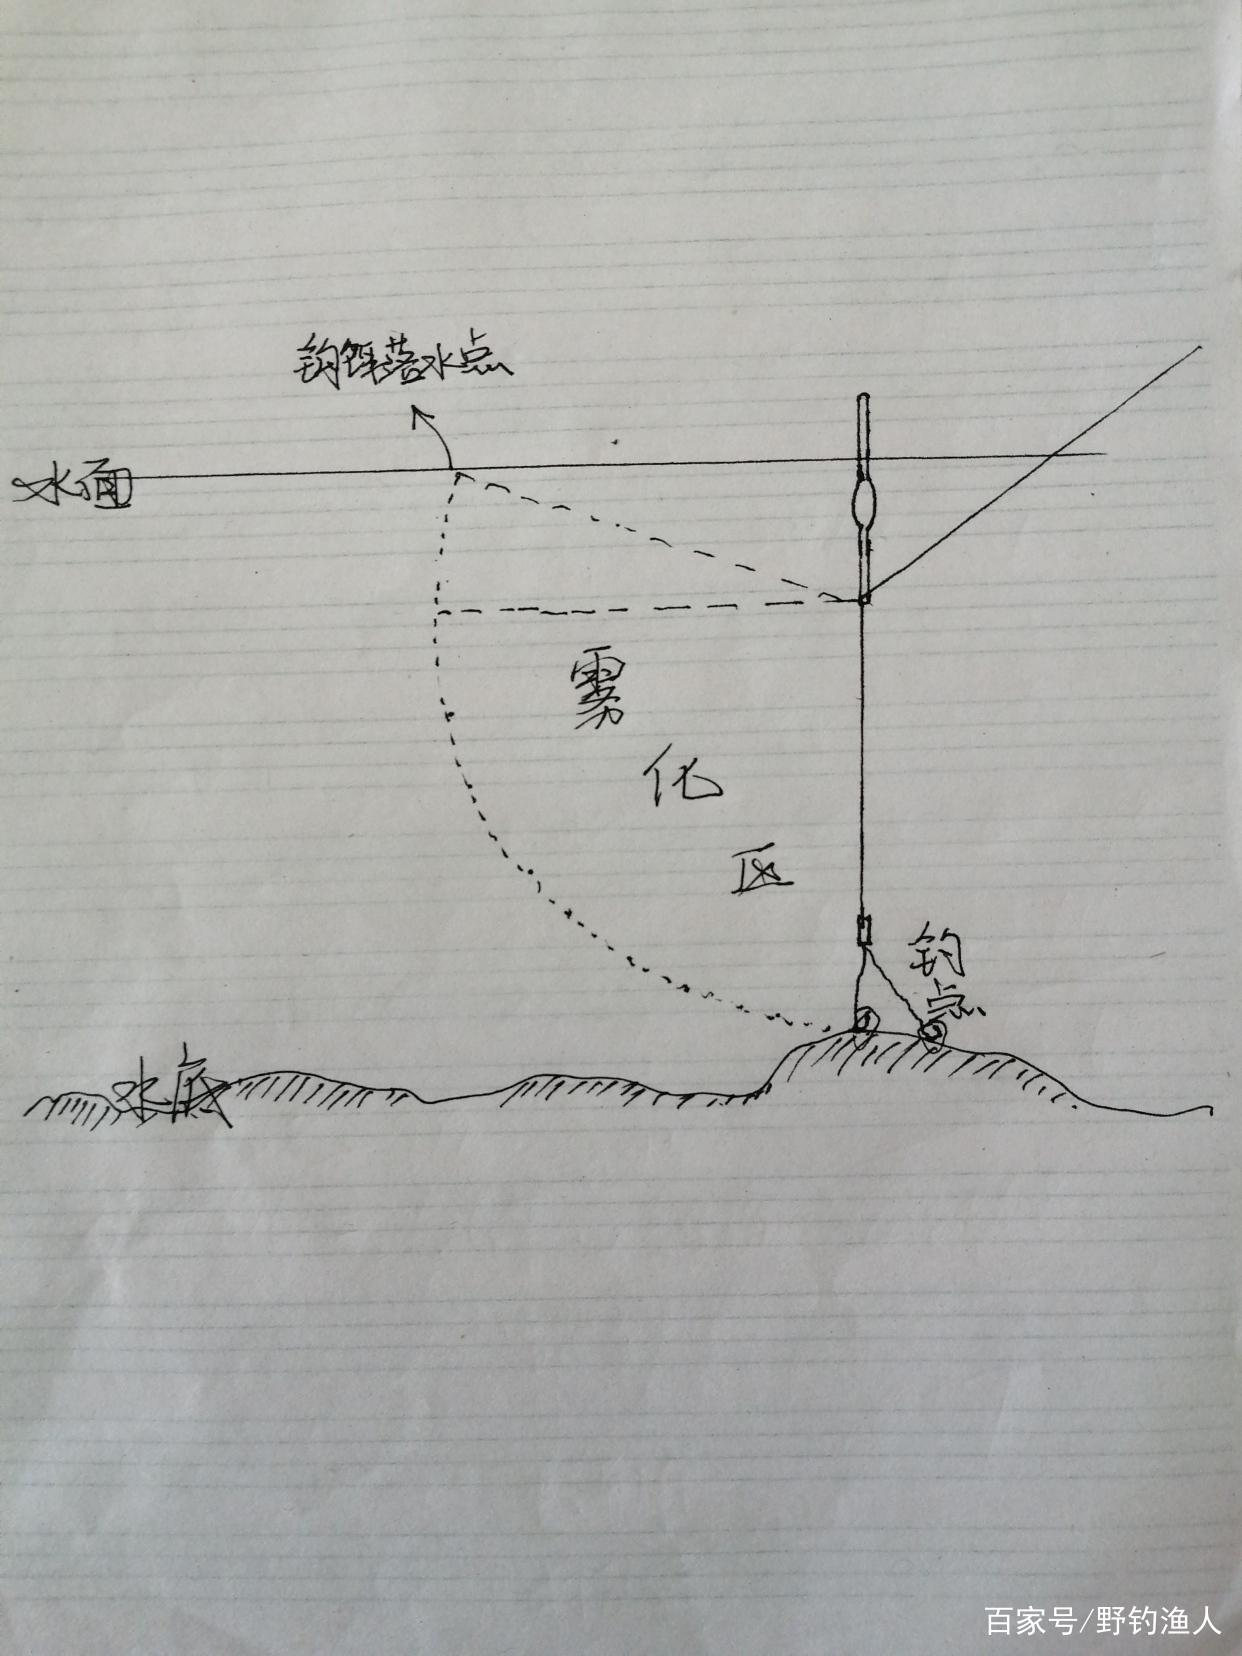 钩饵落水点
水面
雾
化
区
钓
点
水底
百家号/野钓渔人